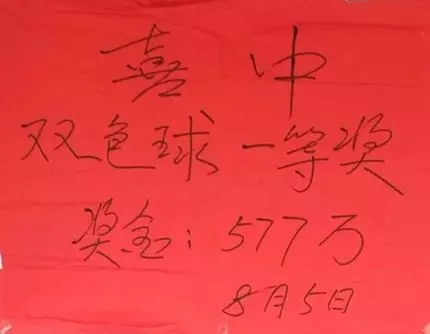 喜中
双色球一等奖
奖金：577万
8月5日